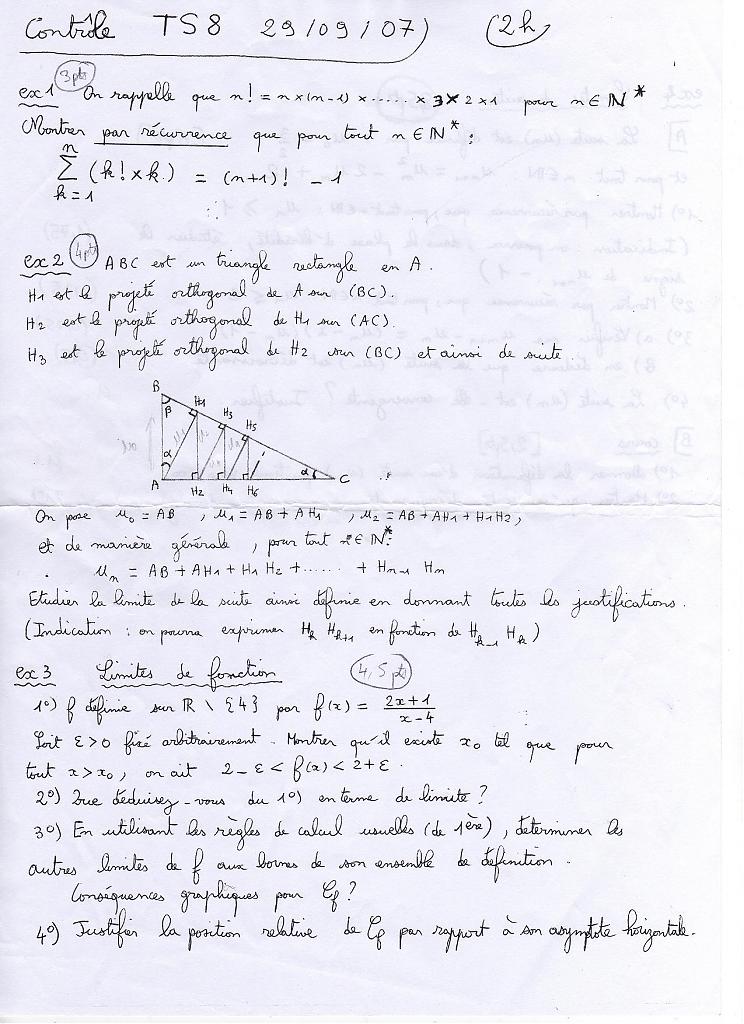 Contrôle TS8 29/09/07) (2h)
ex1 3pts On rappelle que n! = n×(n-1)×......×3×2×1 pour n∈ℕ*
Montrer par récurrence que pour tout n∈ℕ* :
n
∑ (k!×k) = (n+1)! - 1
k=1
ex2 4pts ABC est un triangle rectangle en A.
H1 est le projeté orthogonal de A sur (BC).
H2 est le projeté orthogonal de H1 sur (AC).
H3 est le projeté orthogonal de H2 sur (BC) et ainsi de suite.
B
β H1 H3 H5
α α
A H2 H4 H6 C
On pose u₀ = AB , u₁ = AB + AH1 , u₂ = AB + AH1 + H1H2,
et de manière générale, pour tout n∈ℕ*:
uₙ = AB + AH1 + H1 H2 +...... + Hn-1 Hn
Etudier la limite de la suite ainsi définie en donnant toutes les justifications.
(Indication : on pourra exprimer Hk Hk+1 en fonction de Hk-1 Hk)
ex3 Limites de fonction 4,5 pts
1°) f définie sur ℝ \ {4} par f(x) = (2x+1)/(x-4)
Soit ε>0 fixé arbitrairement. Montrer qu'il existe x₀ tel que pour
tout x>x₀, on ait 2-ε < f(x) < 2+ε.
2°) Que déduisez-vous du 1°) en terme de limite ?
3°) En utilisant les règles de calcul usuelles (de 1ère), déterminer les
autres limites de f aux bornes de son ensemble de définition.
Conséquences graphiques pour Cf ?
4°) Justifier la position relative de Cf par rapport à son asymptote horizontale.